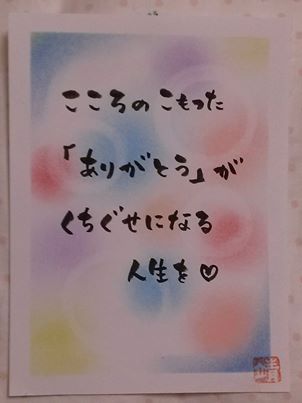 こころのこもった
「ありがとう」が
くちぐせになる
人生を♡